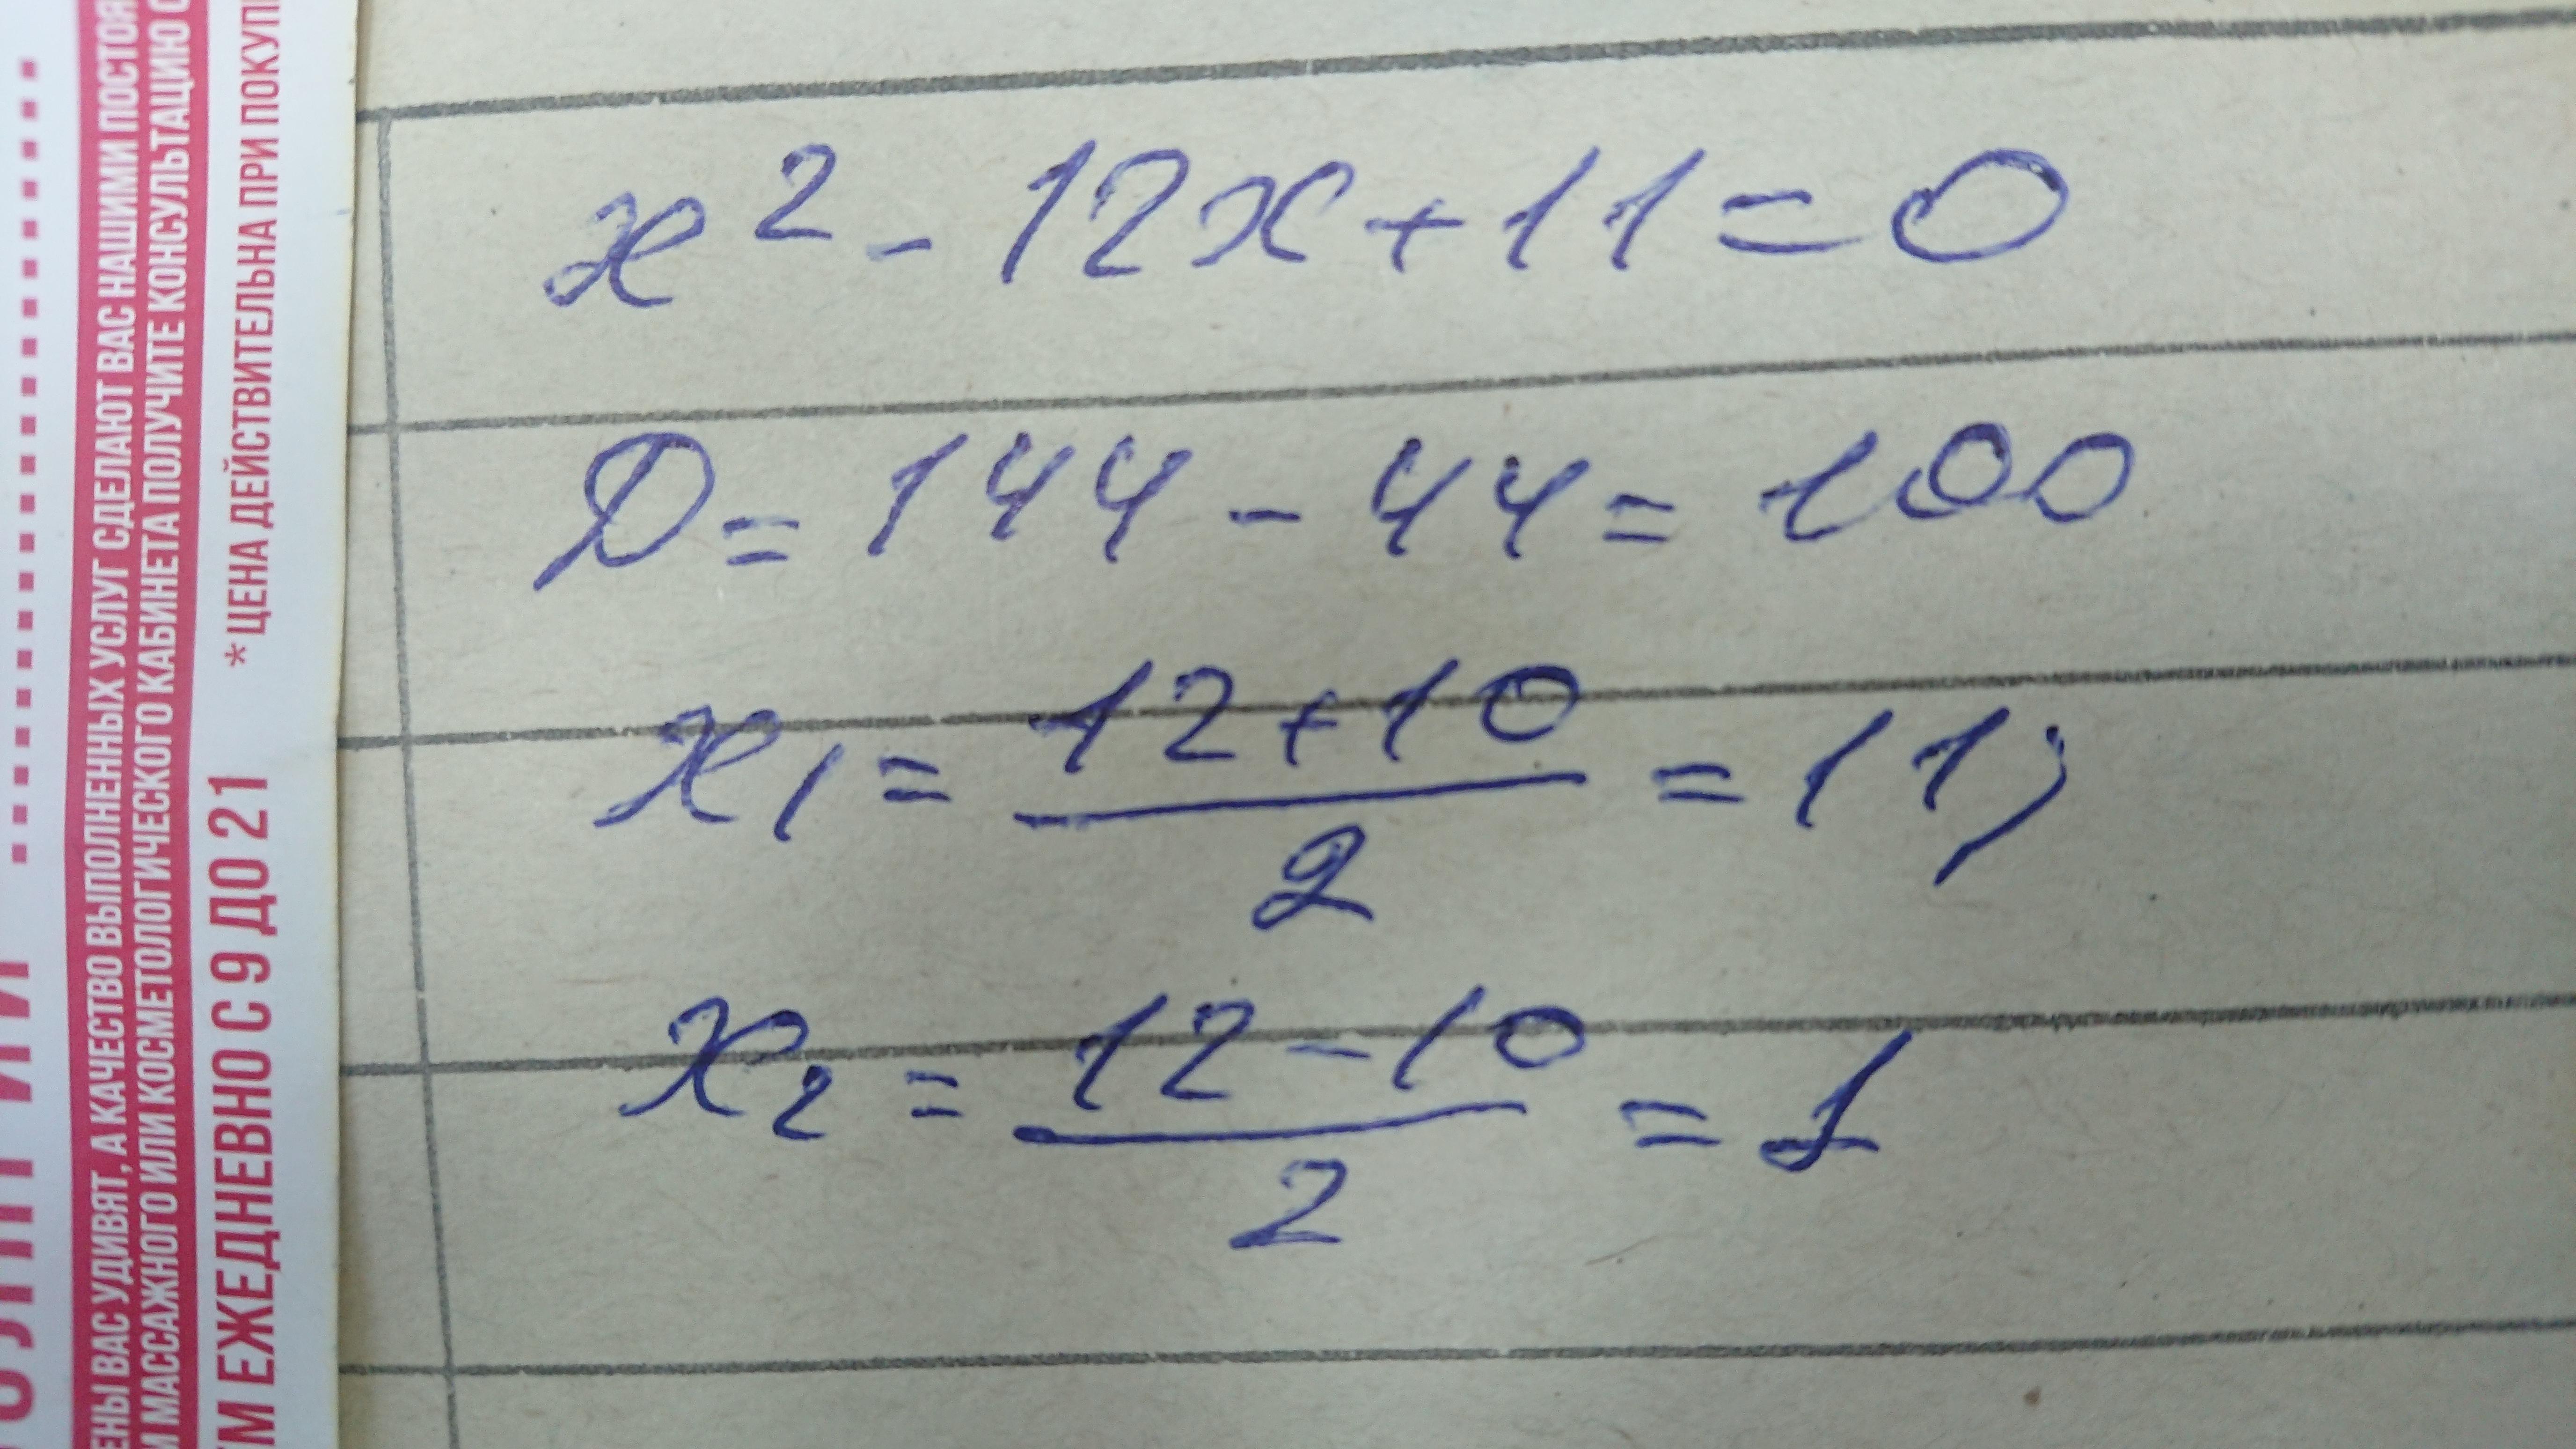 x² - 12x + 11 = 0
D = 144 - 44 = 100
x₁ = (12 + 10)/2 = 11;
x₂ = (12 - 10)/2 = 1
ЕНЫ ВАС УДИВЯТ, А КАЧЕСТВО ВЫПОЛНЕННЫХ УСЛУГ СДЕЛАЮТ ВАС НАШИМИ ПОСТОЯ
М МАССАЖНОГО ИЛИ КОСМЕТОЛОГИЧЕСКОГО КАБИНЕТА ПОЛУЧИТЕ КОНСУЛЬТАЦИЮ С
ЕМ ЕЖЕДНЕВНО С 9 ДО 21
*ЦЕНА ДЕЙСТВИТЕЛЬНА ПРИ ПОКУП